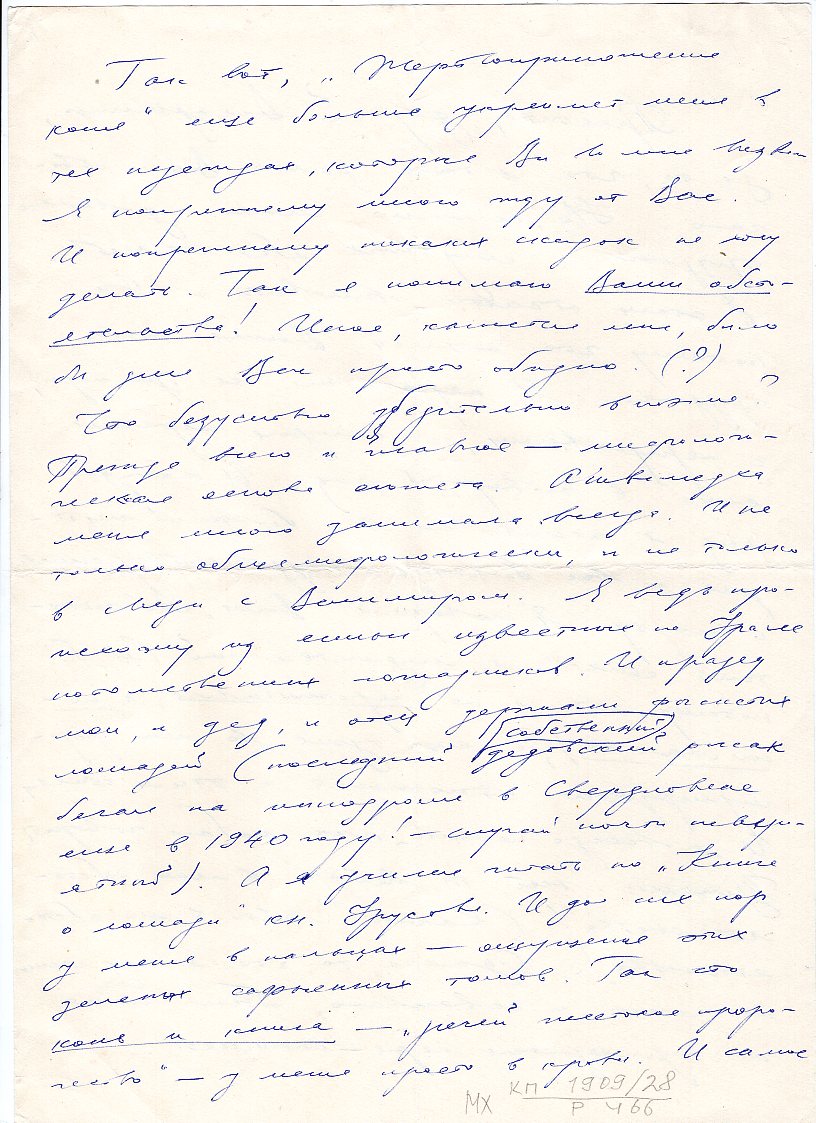 Так вот, „Жертвоприношение
коня" еще больше укрепляет меня в
тех надеждах, которые Вы в мне
Я попрежнему много жду от Вас.
И попрежнему никаких скидок не хочу
делать. Так я понимаю Ваши обсто-
ятельства! Иное, кажется мне, было
бы для Вас просто обидно. (?)
Что безусловно убедительно в поэме?
Прежде всего и главное — мифологи-
ческая основа сюжета.
меня много занимала всегда. И не
только общемифологически, и не только
в связи с Велимиром. Я ведь про-
исхожу из семьи известных на Урале
потомственных лошадников. И прадед
мой, и дед, и отец держали рысистых
лошадей (последний собственный дедовский рысак
бегал на ипподроме в Свердловске
еще в 1940 году! — случай почти неверо-
ятный). А я учился читать по „Книге
о лошади" кн. Урусова. И до сих пор
у меня в пальцах — ощущение этих
зеленых сафьянных томов. Так что
конь и книга — „речей жестокое проро-
чество" — у меня просто в крови. И самое
МХ КП 1909/28
Р Ч 66